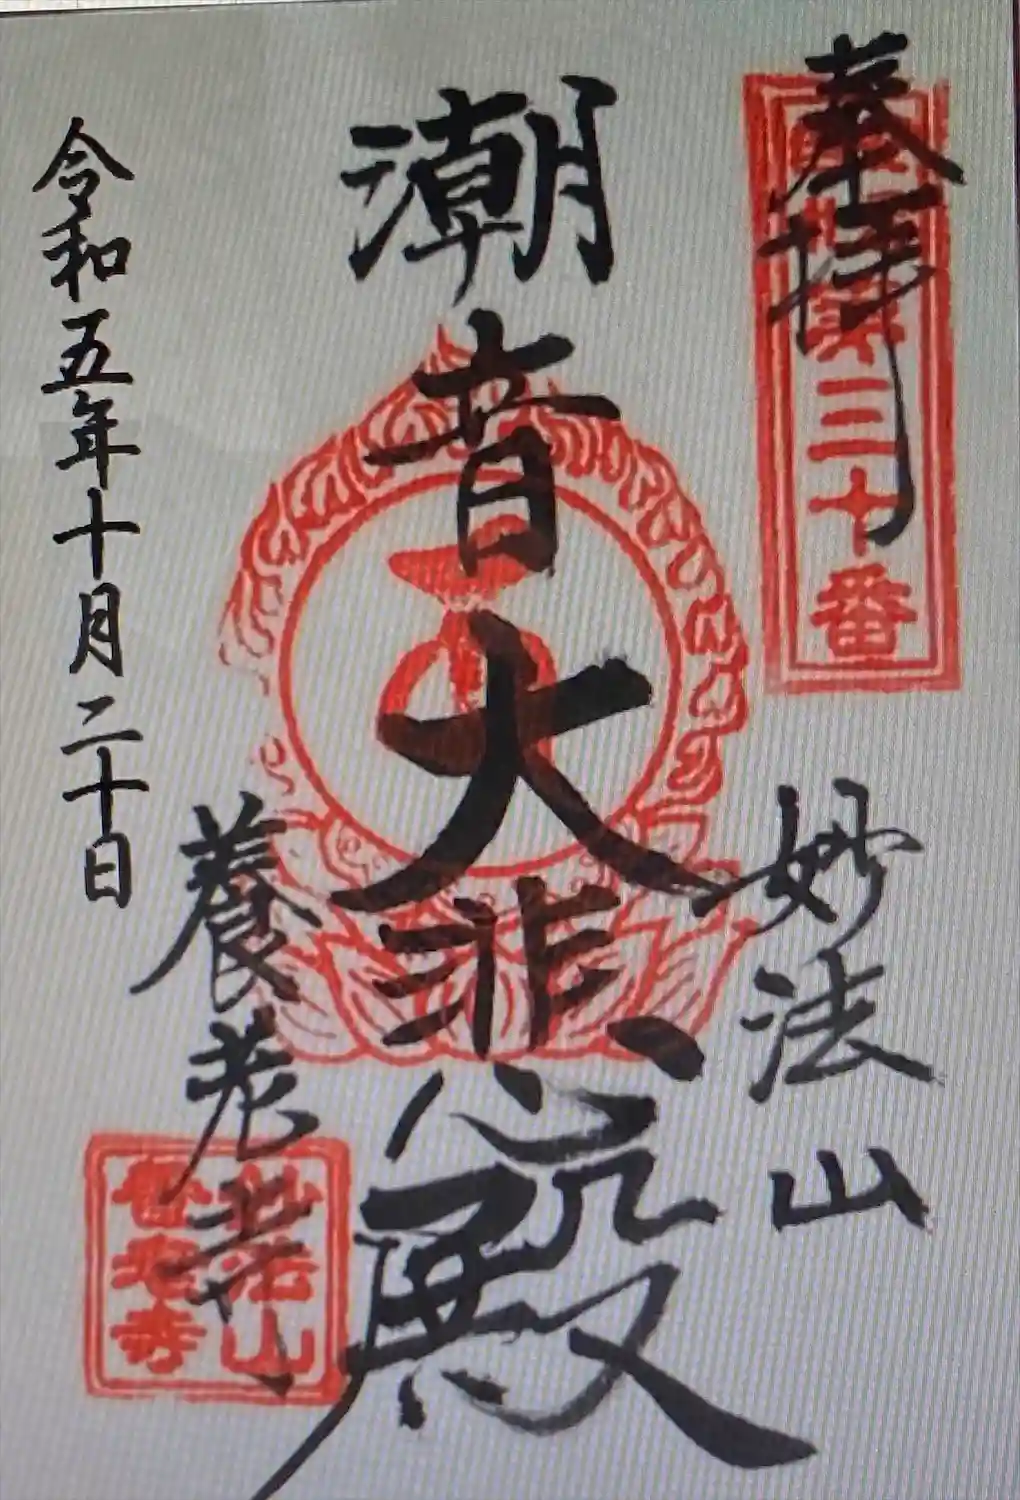 奉拝
第三十番
妙法山
潮音大悲殿
養老寺
妙法山
養老寺
令和五年十月二十日